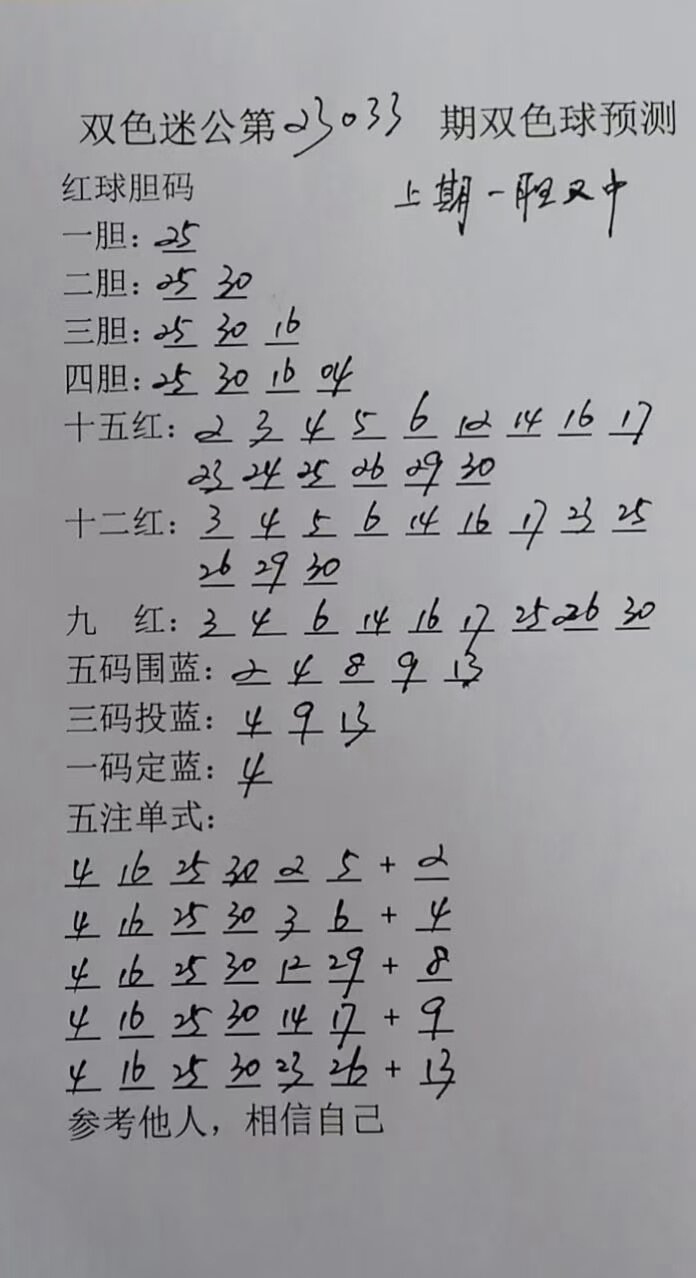 双色迷公第23033期双色球预测
红球胆码 上期一胆又中
一胆：25
二胆：25 30
三胆：25 30 16
四胆：25 30 16 04
十五红：2 3 4 5 6 12 14 16 17
23 24 25 26 29 30
十二红：3 4 5 6 14 16 17 23 25
26 29 30
九 红：3 4 6 14 16 17 25 26 30
五码围蓝：2 4 8 9 13
三码投蓝：4 9 13
一码定蓝：4
五注单式：
4 16 25 30 2 5 + 2
4 16 25 30 3 6 + 4
4 16 25 30 12 29 + 8
4 16 25 30 14 17 + 9
4 16 25 30 23 26 + 13
参考他人，相信自己